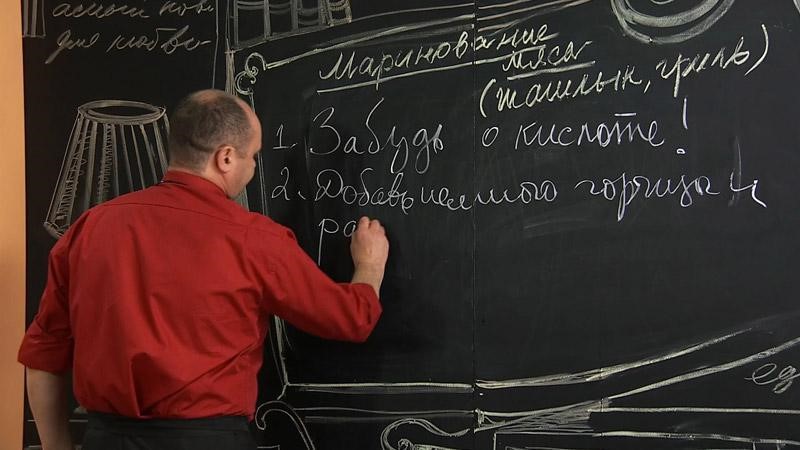 для любви
Маринование
мяса
(шашлык, гриль)
1. Забудь о кислоте!
2. Добавь немного горчицы и
ра